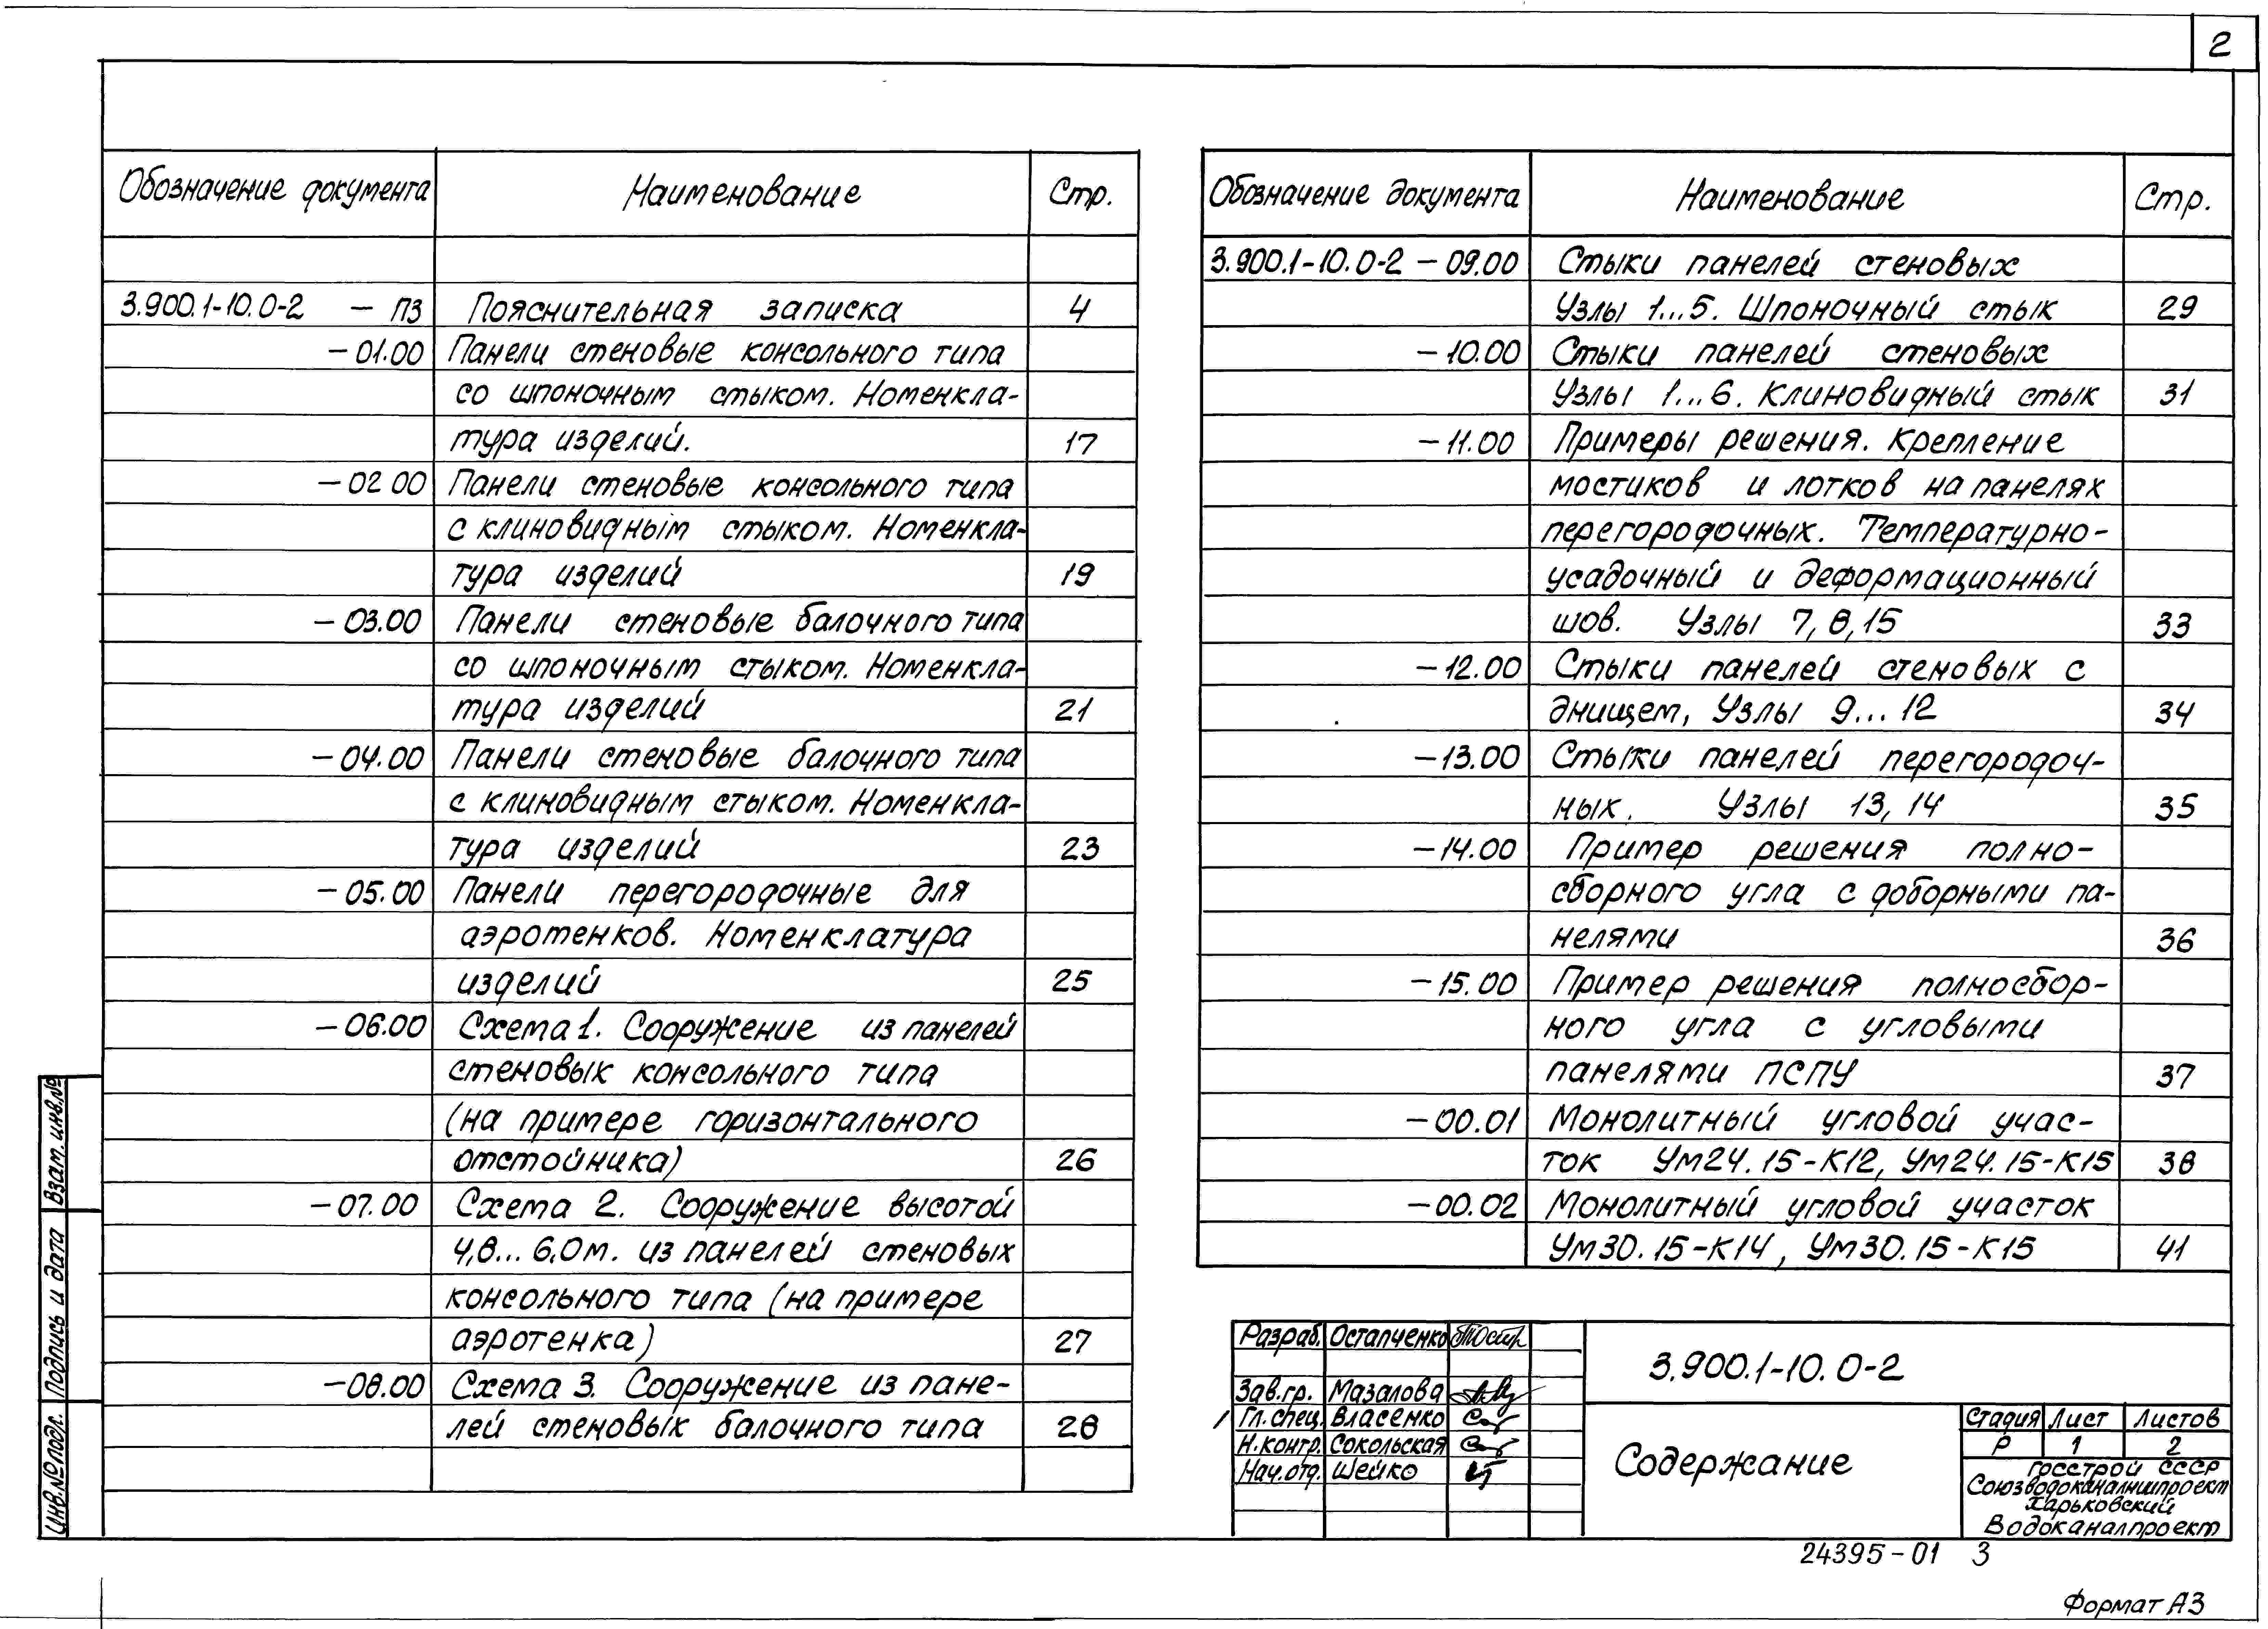 2
Обозначение документа Наименование Стр.
3.900.1-10.0-2 - ПЗ Пояснительная записка 4
-01.00 Панели стеновые консольного типа
со шпоночным стыком. Номенкла-
тура изделий. 17
-02 00 Панели стеновые консольного типа
с клиновидным стыком. Номенкла-
тура изделий 19
-03.00 Панели стеновые балочного типа
со шпоночным стыком. Номенкла-
тура изделий 21
-04.00 Панели стеновые балочного типа
с клиновидным стыком. Номенкла-
тура изделий 23
-05.00 Панели перегородочные для
аэротенков. Номенклатура
изделий 25
-06.00 Схема 1. Сооружение из панелей
стеновых консольного типа
(на примере горизонтального
отстойника) 26
-07.00 Схема 2. Сооружение высотой
4,8... 6,0м. из панелей стеновых
консольного типа (на примере
аэротенка) 27
-08.00 Схема 3. Сооружение из пане-
лей стеновых балочного типа 28
Обозначение документа Наименование Стр.
3.900.1-10.0-2 -09.00 Стыки панелей стеновых
Узлы 1...5. Шпоночный стык 29
-10.00 Стыки панелей стеновых
Узлы 1...6. Клиновидный стык 31
-11.00 Примеры решения. Крепление
мостиков и лотков на панелях
перегородочных. Температурно-
усадочный и деформационный
шов. Узлы 7,8,15 33
-12.00 Стыки панелей стеновых с
днищем, Узлы 9...12 34
-13.00 Стыки панелей перегородоч-
ных. Узлы 13,14 35
-14.00 Пример решения полно-
сборного угла с доборными па-
нелями 36
-15.00 Пример решения полносбор-
ного угла с угловыми
панелями ПСПУ 37
-00.01 Монолитный угловой учас-
ток Ум24.15-К12, Ум24.15-К15 38
-00.02 Монолитный угловой участок
Ум30.15-К14, Ум30.15-К15 41
Взам. инв.№
Подпись и дата
Инв.№ подл.
Разраб. Остапченко
Зав.гр. Мазалова
Гл.спец. Власенко
Н.контр. Сокольская
Нач.отд. Шейко
3.900.1-10.0-2
Содержание
Стадия Лист Листов
Р 1 2
Госстрой СССР
Союзводоканалниипроект
Харьковский
Водоканалпроект
24395-01 3
Формат А3